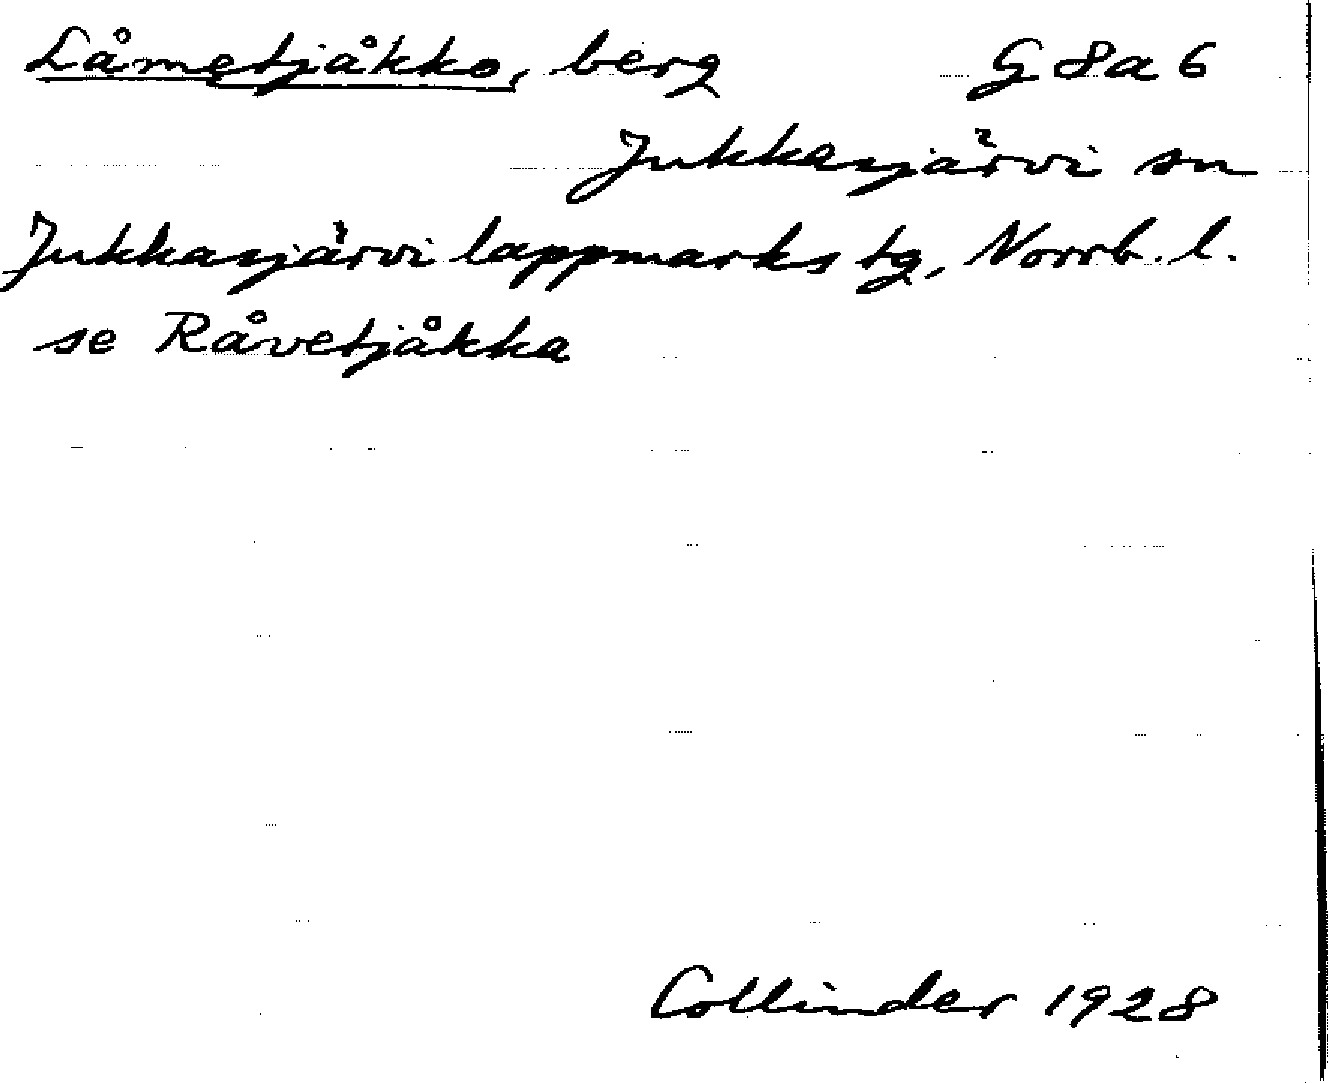 Låmetjåkko, berg G 8a 6
Jukkasjärvi sn
Jukkasjärvi lappmarks tg, Norrb. l.
se Råvetjåkka
Collinder 1928